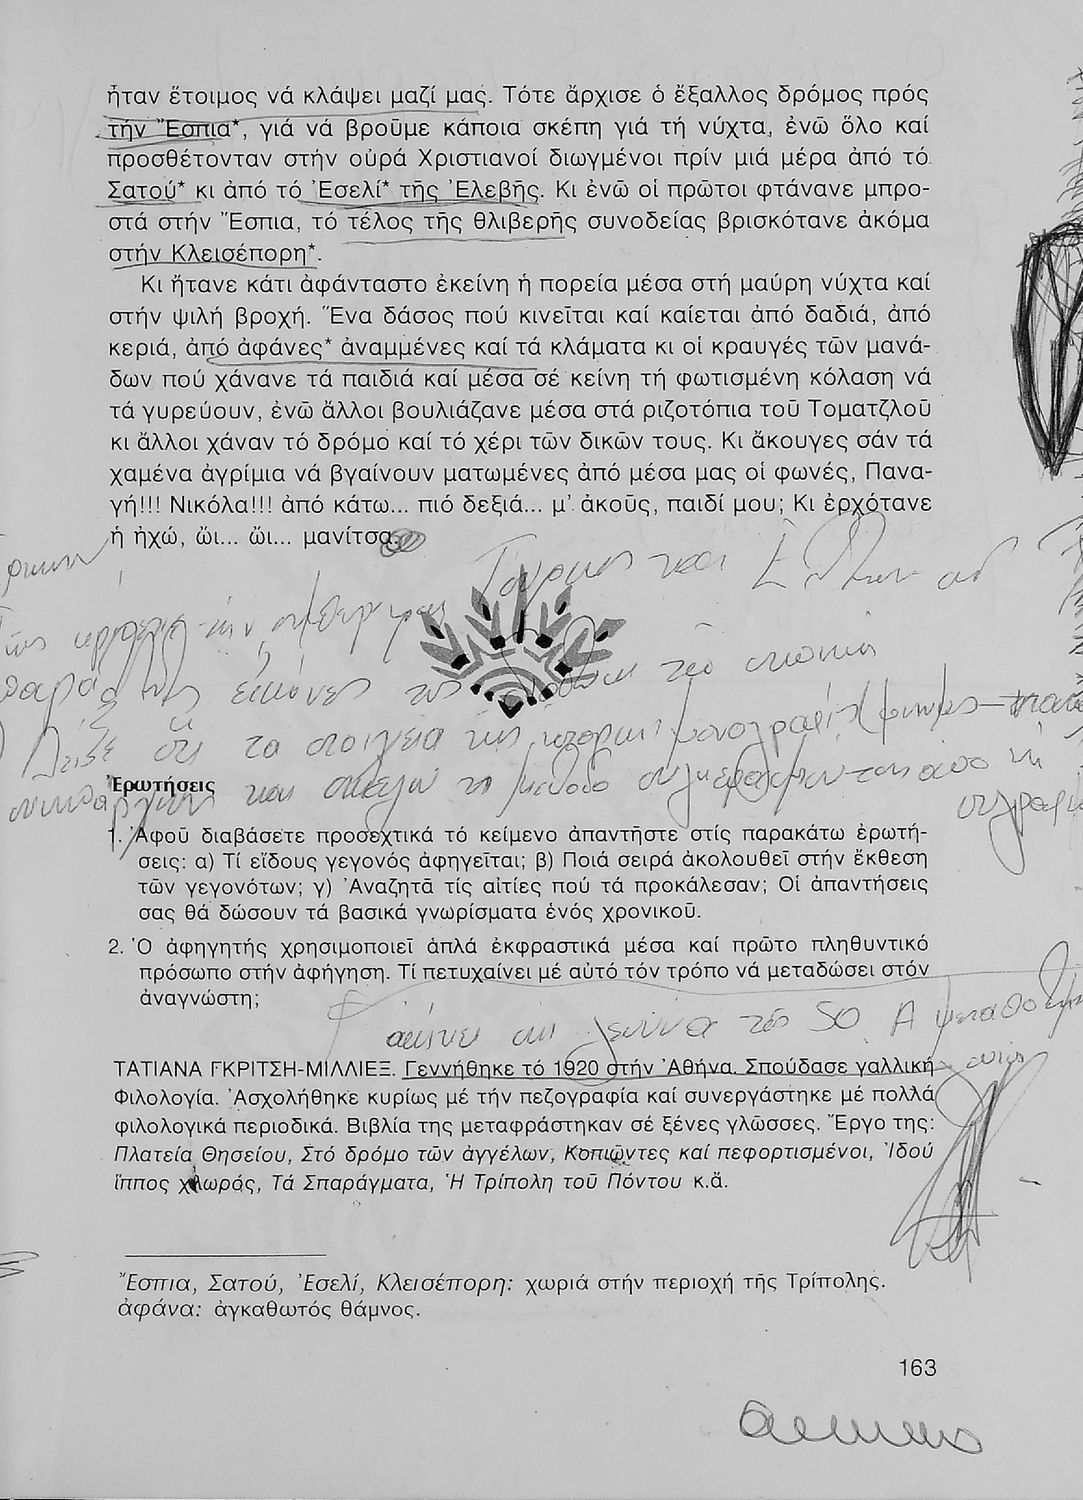 ἦταν ἕτοιμος νά κλάψει μαζί μας. Τότε ἄρχισε ὁ ἔξαλλος δρόμος πρός
τήν Ἔσπια*, γιά νά βροῦμε κάποια σκέπη γιά τή νύχτα, ἐνῶ ὅλο καί
προσθέτονταν στήν οὐρά Χριστιανοί διωγμένοι πρίν μιά μέρα ἀπό τό
Σατού* κι ἀπό τό Ἐσελί* τῆς Ἐλεβῆς. Κι ἐνῶ οἱ πρῶτοι φτάνανε μπρο-
στά στήν Ἔσπια, τό τέλος τῆς θλιβερῆς συνοδείας βρισκότανε ἀκόμα
στήν Κλεισέπορη*.
Κι ἤτανε κάτι ἀφάνταστο ἐκείνη ἡ πορεία μέσα στή μαύρη νύχτα καί
στήν ψιλή βροχή. Ἕνα δάσος πού κινεῖται καί καίεται ἀπό δαδιά, ἀπό
κεριά, ἀπό ἀφάνες* ἀναμμένες καί τά κλάματα κι οἱ κραυγές τῶν μανά-
δων πού χάνανε τά παιδιά καί μέσα σέ κείνη τή φωτισμένη κόλαση νά
τά γυρεύουν, ἐνῶ ἄλλοι βουλιάζανε μέσα στά ριζοτόπια τοῦ Τοματζλοῦ
κι ἄλλοι χάναν τό δρόμο καί τό χέρι τῶν δικῶν τους. Κι ἄκουγες σάν τά
χαμένα ἀγρίμια νά βγαίνουν ματωμένες ἀπό μέσα μας οἱ φωνές, Πανα-
γή!!! Νικόλα!!! ἀπό κάτω... πιό δεξιά... μ' ἀκοῦς, παιδί μου; Κι ἐρχότανε
ἡ ἠχώ, ὤι... ὤι... μανίτσα.
Τούρκους και
εικόνες
ότι τα στοιχεία της
και
τη μέθοδο
από τη
Ἐρωτήσεις
1. Ἀφοῦ διαβάσετε προσεχτικά τό κείμενο ἀπαντῆστε στίς παρακάτω ἐρωτή-
σεις: α) Τί εἴδους γεγονός ἀφηγεῖται; β) Ποιά σειρά ἀκολουθεῖ στήν ἔκθεση
τῶν γεγονότων; γ) Ἀναζητᾶ τίς αἰτίες πού τά προκάλεσαν; Οἱ ἀπαντήσεις
σας θά δώσουν τά βασικά γνωρίσματα ἑνός χρονικοῦ.
2. Ὁ ἀφηγητής χρησιμοποιεῖ ἁπλά ἐκφραστικά μέσα καί πρῶτο πληθυντικό
πρόσωπο στήν ἀφήγηση. Τί πετυχαίνει μέ αὐτό τόν τρόπο νά μεταδώσει στόν
ἀναγνώστη;
ΤΑΤΙΑΝΑ ΓΚΡΙΤΣΗ-ΜΙΛΛΙΕΞ. Γεννήθηκε τό 1920 στήν Ἀθήνα. Σπούδασε γαλλική
Φιλολογία. Ἀσχολήθηκε κυρίως μέ τήν πεζογραφία καί συνεργάστηκε μέ πολλά
φιλολογικά περιοδικά. Βιβλία της μεταφράστηκαν σέ ξένες γλῶσσες. Ἔργο της:
Πλατεία Θησείου, Στό δρόμο τῶν ἀγγέλων, Κοπιῶντες καί πεφορτισμένοι, Ἰδού
ἵππος χλωρός, Τά Σπαράγματα, Ἡ Τρίπολη τοῦ Πόντου κ.ἄ.
Ἔσπια, Σατού, Ἐσελί, Κλεισέπορη: χωριά στήν περιοχή τῆς Τρίπολης.
ἀφάνα: ἀγκαθωτός θάμνος.
163